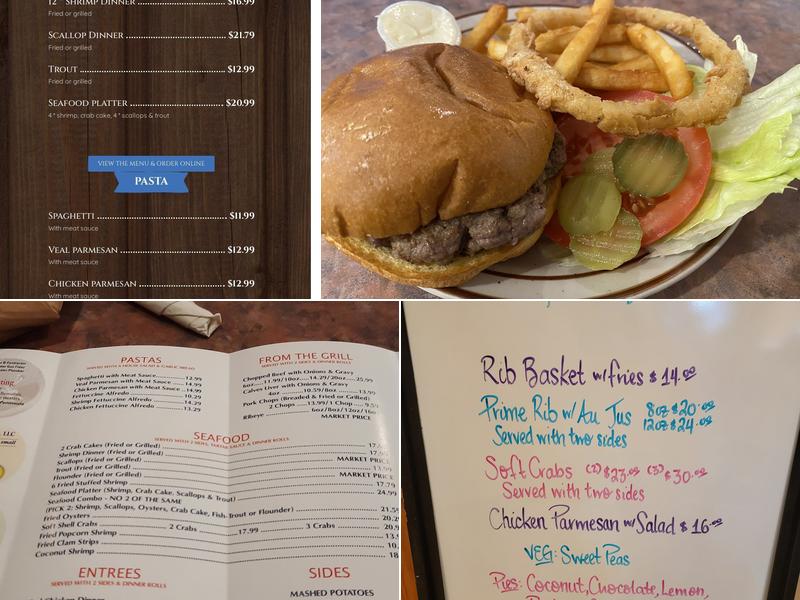 12 * SHRIMP DINNER $16.99
Fried or grilled
SCALLOP DINNER $21.79
Fried or grilled
TROUT $12.99
Fried or grilled
SEAFOOD PLATTER $20.99
4 * shrimp, crab cake, 4 * scallops & trout
VIEW THE MENU & ORDER ONLINE
PASTA
SPAGHETTI $11.99
With meat sauce
VEAL PARMESAN $12.99
With meat sauce
CHICKEN PARMESAN $12.99
With meat sauce
PASTAS
SERVED WITH A HOUSE SALAD & GARLIC BREAD
Spaghetti with Meat Sauce 12.99
Veal Parmesan with Meat Sauce 14.99
Chicken Parmesan with Meat Sauce 14.99
Fettuccine Alfredo 10.29
Shrimp Fettuccine Alfredo 14.29
Chicken Fettuccine Alfredo 13.29
FROM THE GRILL
SERVED WITH 2 SIDES & DINNER ROLLS
Chopped Beef with Onions & Gravy
6oz 11.99/10oz 14.29/20oz 25.99
Calves Liver with Onions & Gravy
4oz 10.59/8oz 13.99
Pork Chops (Breaded & Fried or Grilled)
2 Chops 13.99/1 Chop 9.5
Ribeye 6oz/8oz/12oz/16o
MARKET PRICE
SEAFOOD
SERVED WITH 2 SIDES, TARTAR SAUCE & DINNER ROLLS
2 Crab Cakes (Fried or Grilled) 17.
Shrimp Dinner (Fried or Grilled) 17.
Scallops (Fried or Grilled) MARKET PRICE
Trout (Fried or Grilled) 13.99
Flounder (Fried or Grilled) MARKET PRICE
6 Fried Stuffed Shrimp 17.79
Seafood Platter (Shrimp, Crab Cake, Scallops & Trout) 24.99
Seafood Combo - NO 2 OF THE SAME
(PICK 2: Shrimp, Scallops, Oysters, Crab Cake, Fish-Trout or Flounder) 21.5
Fried Oysters 20.2
Soft Shell Crabs 2 Crabs 17.99 3 Crabs 20.9
Fried Popcorn Shrimp 13.
Fried Clam Strips 10.
Coconut Shrimp 18
ENTREES
SERVED WITH 2 SIDES & DINNER ROLLS
SIDES
MASHED POTATOES
LLC
small
Rib Basket w/fries $14.00
Prime Rib w/ Au Jus 8oz $20.00
12oz $24.00
Served with two sides
Soft Crabs (2) $23.00 (3) $30.00
Served with two sides
Chicken Parmesan w/Salad $16.00
VEG: Sweet Peas
Pies: Coconut, Chocolate, Lemon,